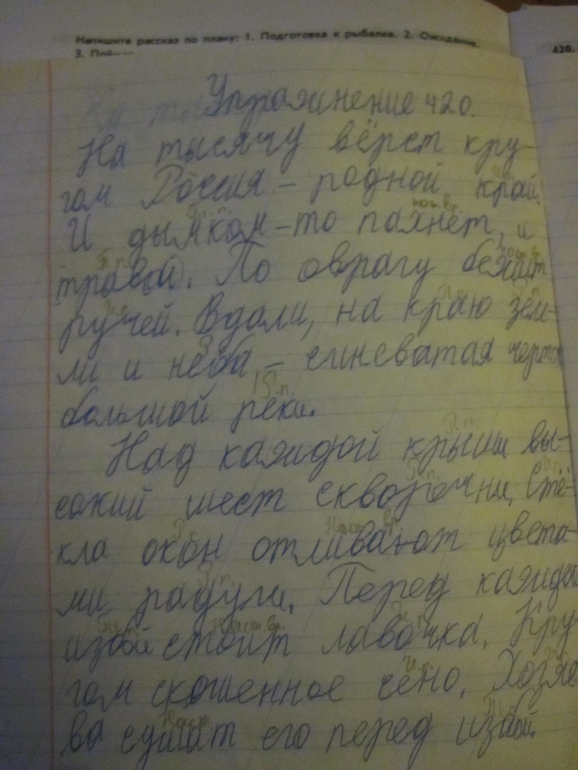 Напишите рассказ по плану: 1. Подготовка к рыбалке. 2. Ожидание.
3.
428.
Упражнение 420.
На тысячу вёрст кру-
гом Россия - родной край.
И дымком-то пахнет, и
травой. По оврагу бежит
ручей. Вдали, на краю зем-
ли и неба - синеватая черта
большой реки.
Над каждой крыши вы-
сокий шест скворечни. Стё-
кла окон отливают цвета-
ми радуги. Перед каждой
избой стоит лавочка. Кру-
гом скошенное сено. Хозяе
ва сушат его перед избой.